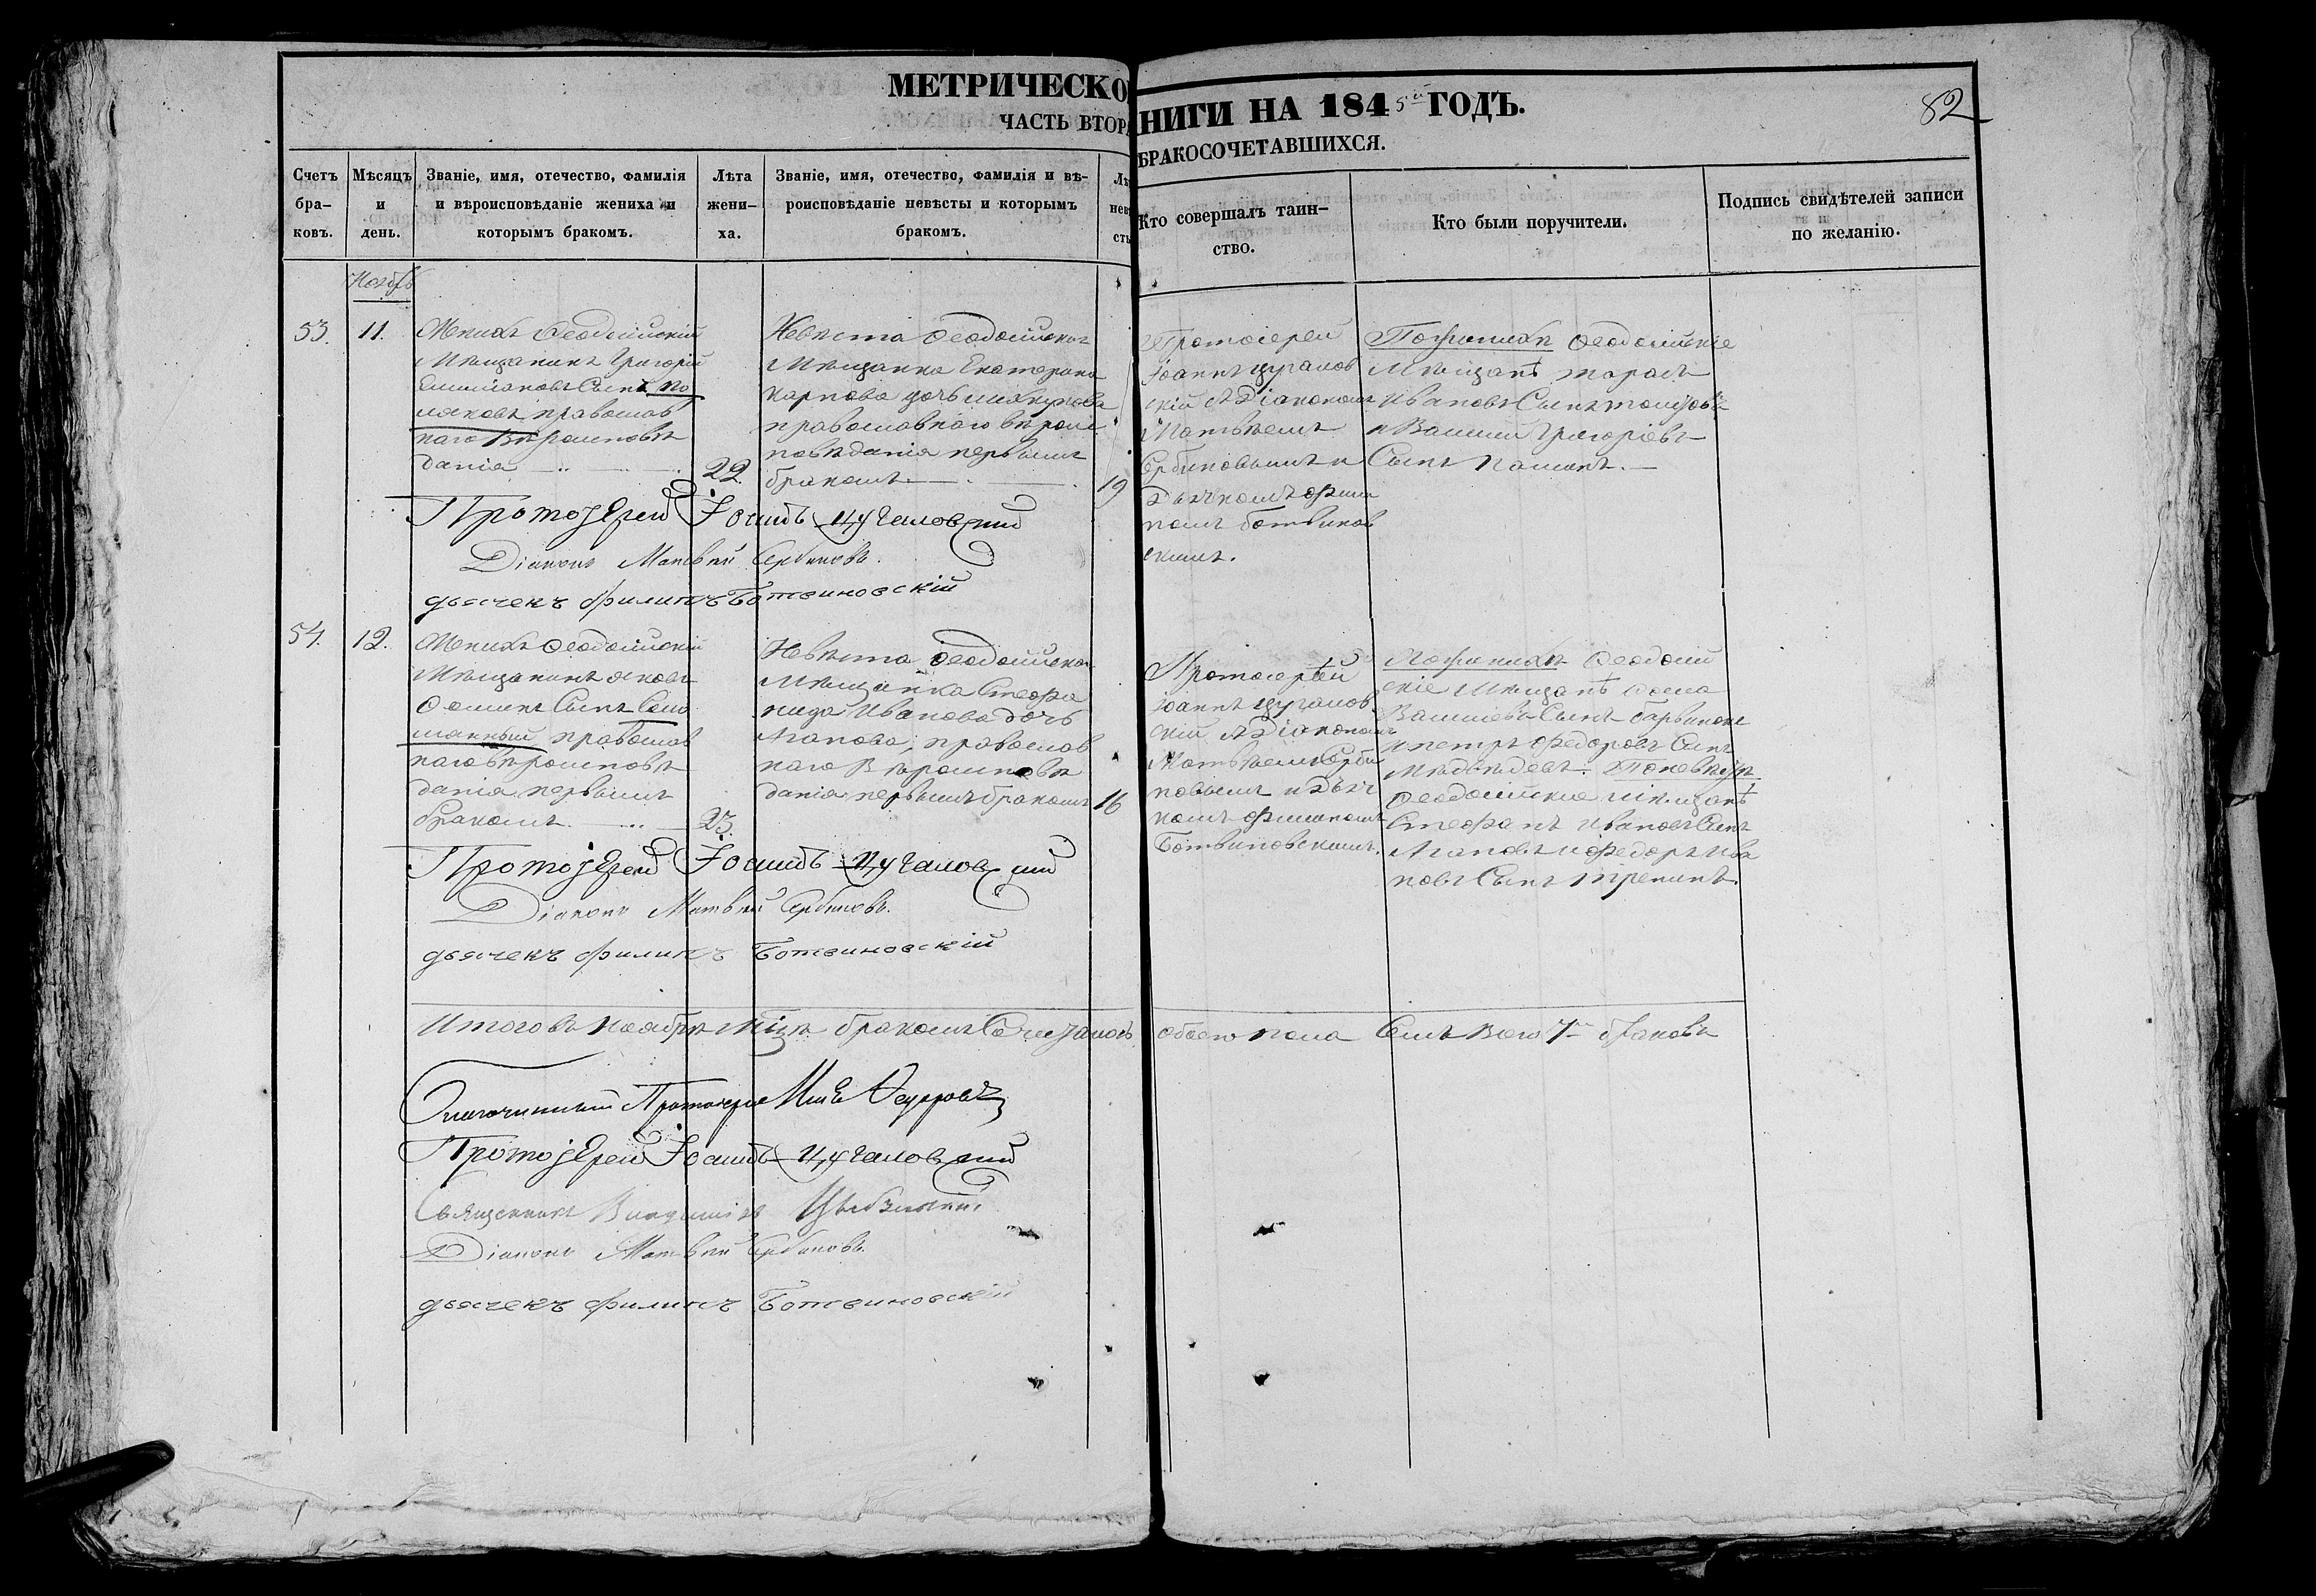 МЕТРИЧЕСКО
НИГИ НА 1845й ГОДЪ.
82
ЧАСТЬ ВТОРА
БРАКОСОЧЕТАВШИХСЯ.
Счетъ бра-
ковъ.
Мѣсяцъ
и
день.
Званіе, имя, отечество, фамилія
и вѣроисповѣданіе жениха и
которымъ бракомъ.
Лѣта
жени-
ха.
Званіе, имя, отечество, фамилія и вѣ-
роисповѣданіе невѣсты и которымъ
бракомъ.
Кто совершалъ таин-
ство.
Кто были поручители.
Подпись свидѣтелей записи
по желанію.
Ноябрь
53.
11.
Женихъ Ѳеодосійскій
Мѣщанинъ Григорій
Емиліановъ Сынъ По
ляковъ православ
наго Вѣроисповѣ
данія
22.
Невѣста Ѳеодосійская
Мѣщанка Екатерина
Карпова дочь
православнаго вѣроис
повѣданія первымъ
бракомъ
19
Протоіерей
Іоаннъ Цугалов
скій съ Діакономъ
Матвѣемъ
Сербиновымъ и
Дьячкомъ Фили
помъ Ботвинов
скимъ.
По женихѣ Ѳеодосійскіе
Мѣщане Тарасъ
Ивановъ Сынъ
и Василій Григоріевъ
Сынъ
Протоіерей Іоаннъ Цугаловскій
Діаконъ Матвѣй Сербиновъ.
дьячекъ Филипъ Ботвиновскій
54.
12.
Женихъ Ѳеодосійскій
Мѣщанинъ Яковъ
Ѳоминъ Сынъ Соло
мянный православ
наго вѣроисповѣ
данія первымъ
бракомъ
23.
Невѣста Ѳеодосійская
Мѣщанка Стефа
нида Иванова дочь
Агапова, православ
наго Вѣроисповѣ
данія первымъ бракомъ
16
Протоіерей
Іоаннъ Цугалов
скій съ Діакономъ
Матвѣемъ Серби
новымъ и Дьяч
комъ Филипомъ
Ботвиновскимъ.
По женихѣ Ѳеодосій
скіе Мѣщане Ѳома
Васильевъ Сынъ Барвинокъ
и Петръ Федоровъ Сынъ
Медвѣдевъ. По невѣстѣ
Ѳеодосійскіе мѣщане
Стефанъ Ивановъ Сынъ
Агаповъ и Федоръ Ива
новъ Сынъ
Протоіерей Іоаннъ Цугаловскій
Діаконъ Матвѣй Сербиновъ.
дьячекъ Филипъ Ботвиновскій
Итого въ Ноябрѣ мѣцѣ бракомъ Сочетались обоего пола Семь Всего 7 браковъ
Благочинный Протоіерей
Протоіерей Іоаннъ Цугаловскій
Священникъ Владиміръ
Діаконъ Матвѣй Сербиновъ
дьячекъ Филипъ Ботвиновскій